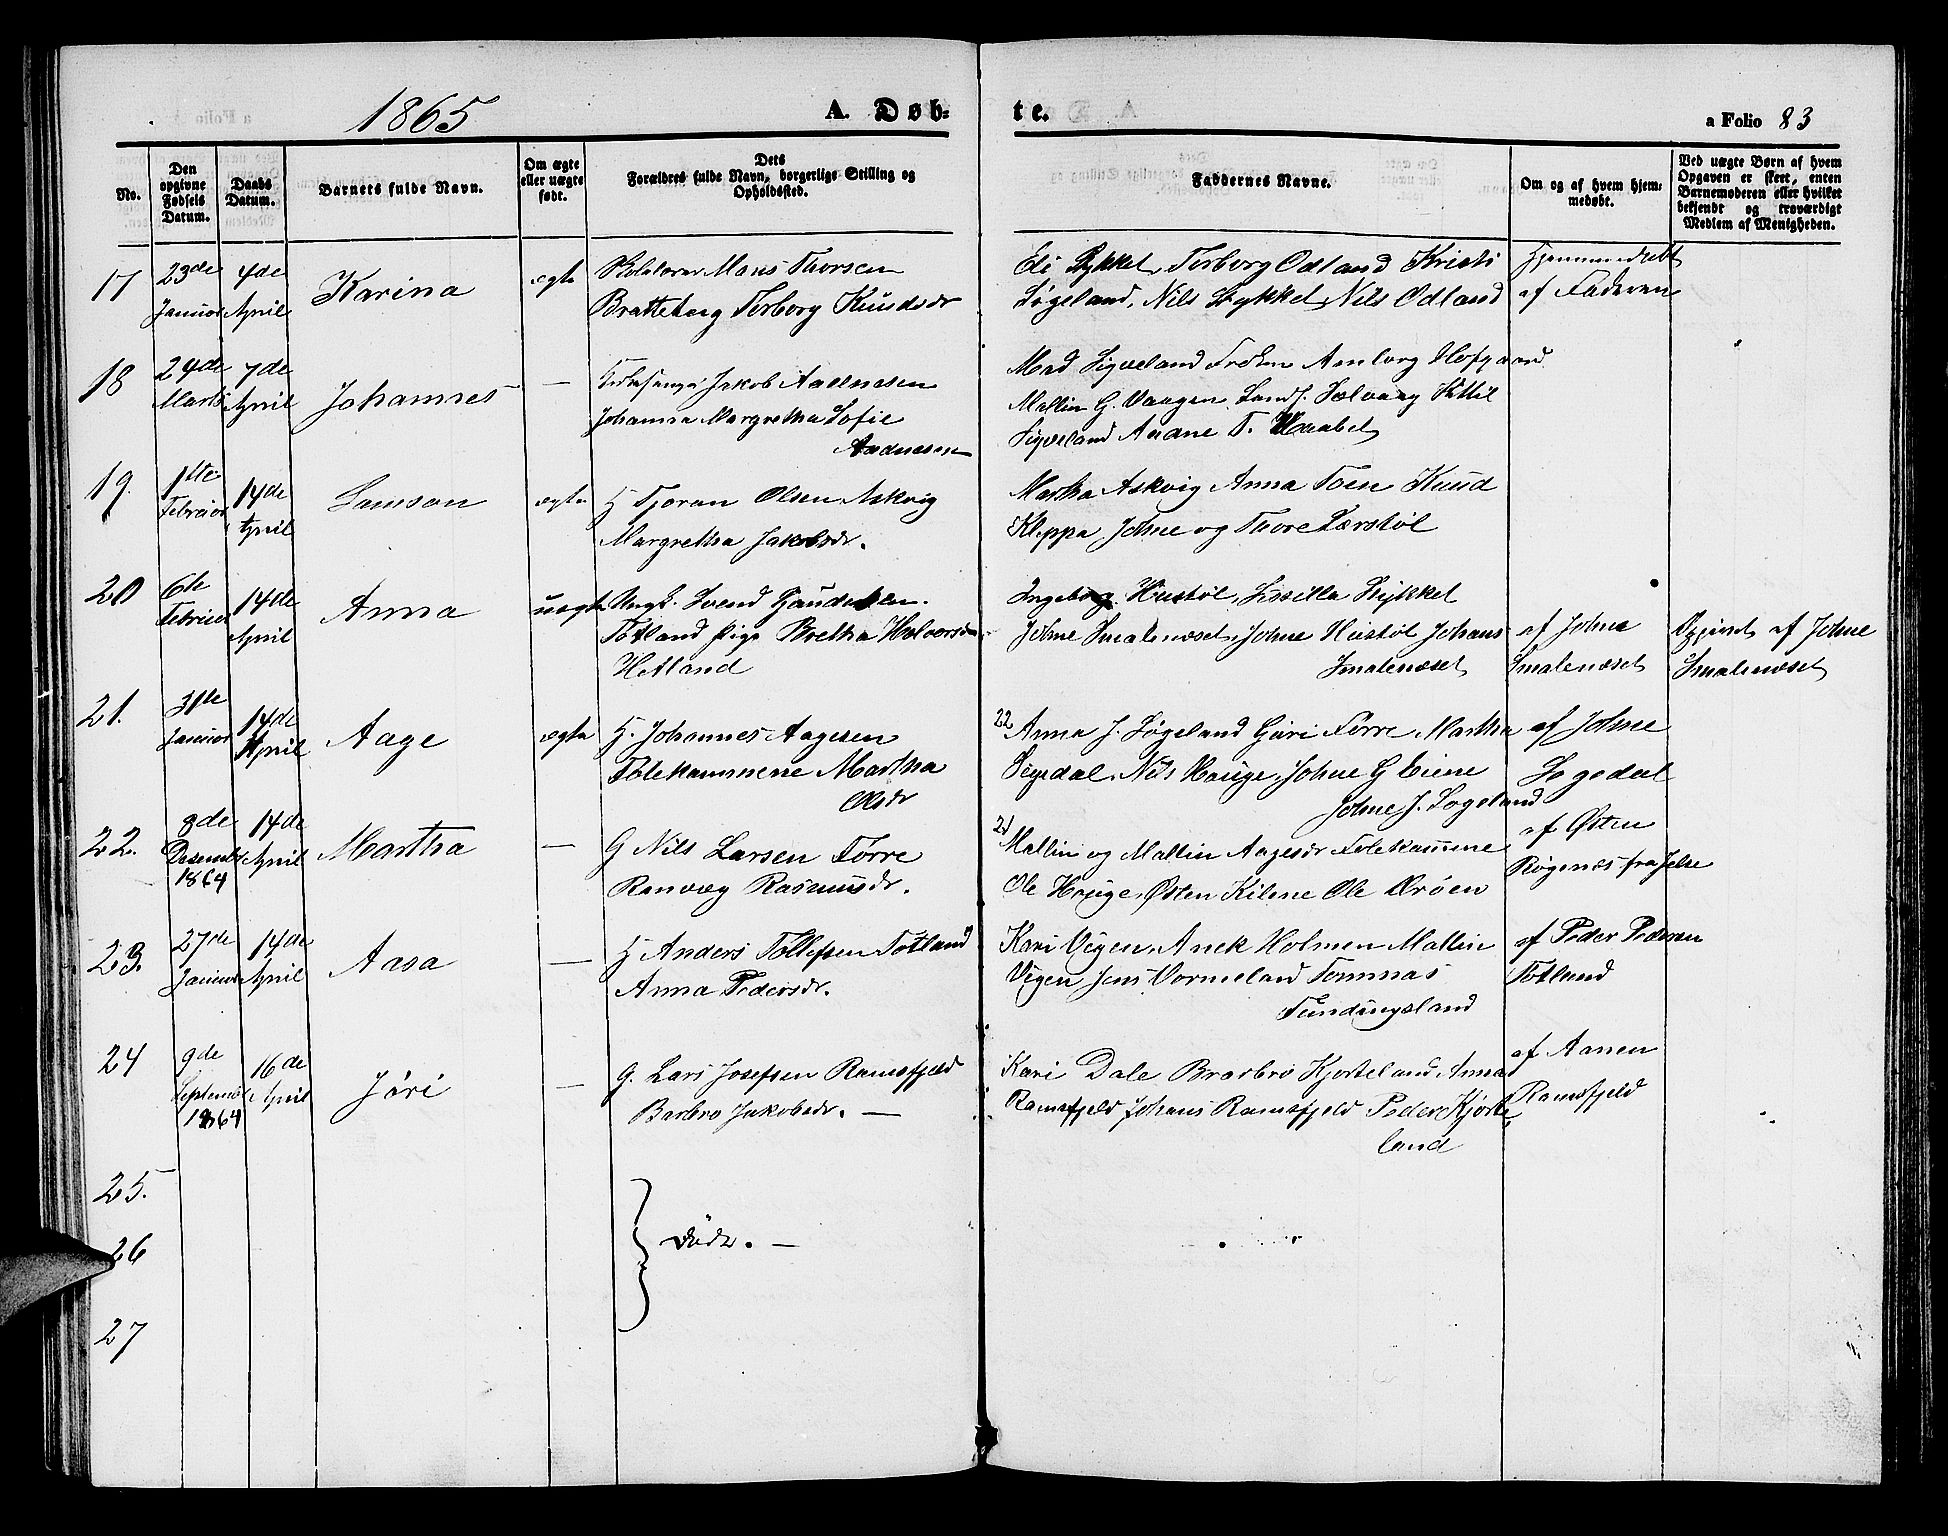 1865
A. Døb-
te.
a Folio 83
No.
Den opgivne Fødsels Datum.
Daabs Datum.
Barnets fulde Navn.
Om ægte eller uægte født.
Dets Forældres fulde Navn, borgerlige Stilling og Opholdssted.
Faddernes Navne.
Om og af hvem hjemmedøbt.
Ved uægte Børn af hvem Opgaven er skeet, enten Barnemoderen eller hvilket bekjendt og troværdigt Medlem af Menigheden.
17 23de Januar 4de April Karina ægte
Skolelærer Mons Thorsen
Bratteberg Torborg Knudsdr
Eli Stykket, Torborg Odland Kristi
Løgeland, Nils Stykket, Nils Odland
Hjemmedøbt
af Faderen
18 24de Marts 7de April Johannes —
Kirkesanger Jakob Aadnesen
Johanna Margretha Sofie
Aadnesen
Mad Sigveland Frøken Amborg Hofgaard
Mallin G. Vaagen Landh. Sølvaag Kittil
Sigveland Aadne T.
19. 1ste Februar 14de April Samson ægte
H Tjoran Olsen Askvig
Margretha Jakobsdr.
Martha Askvig Anna Toen Knud
Kleppa, Johne og Thore Lærstøl
20 6te Februar 14de April Anna uægte
Ungk. Svend
Totland Pige Bretha Halvorsdr
Hetland
Ingeborg Hustøl, Sissilla Stykket
Johne Smalenæset, Johne Hustøl Johans
Smalenæset
af Johne
Smalenæset
Opgivet af Johne
Smalenæset
21. 31te Januar 14de April Aage ægte
H. Johannes Aagesen
Folekammene Martha
Olsdr
22 Anna J. Løgeland Guri Førre Martha
Segedal, Nils Hauge, Johne G Eiene
Johne J. Løgeland
af Johne
Segedal
22. 8de Desember 1864 14de April Martha —
G Nils Larsen Førre
Ranvæg Rasmusdr.
21 Mallin og Mallin Aagesdr Folekammene
Ole Hauge, Østen Kilene Ole Ørøen
af Østen
Røgenæs fra Jelse
23. 27de Januar 14de April Aasa —
H Anders Tollefsen Totland
Anna Pedersdr.
Kari Vigen, Anek Holmen Mallin
Vigen, Jens Vormeland Tommas
Fundingsland
af Peder Pedersen
Totland
24 9de September 1864 16de April Jöri —
G. Lars Josefsen Ramsfjeld
Barbro Jakobsdr. —
Kari Dale Brarbro Kjorteland, Anna
Ramsfjeld Johans Ramsfjeld Peder Kjorte
land
af Aanen
Ramsfjeld
25.
26
27
döde. —